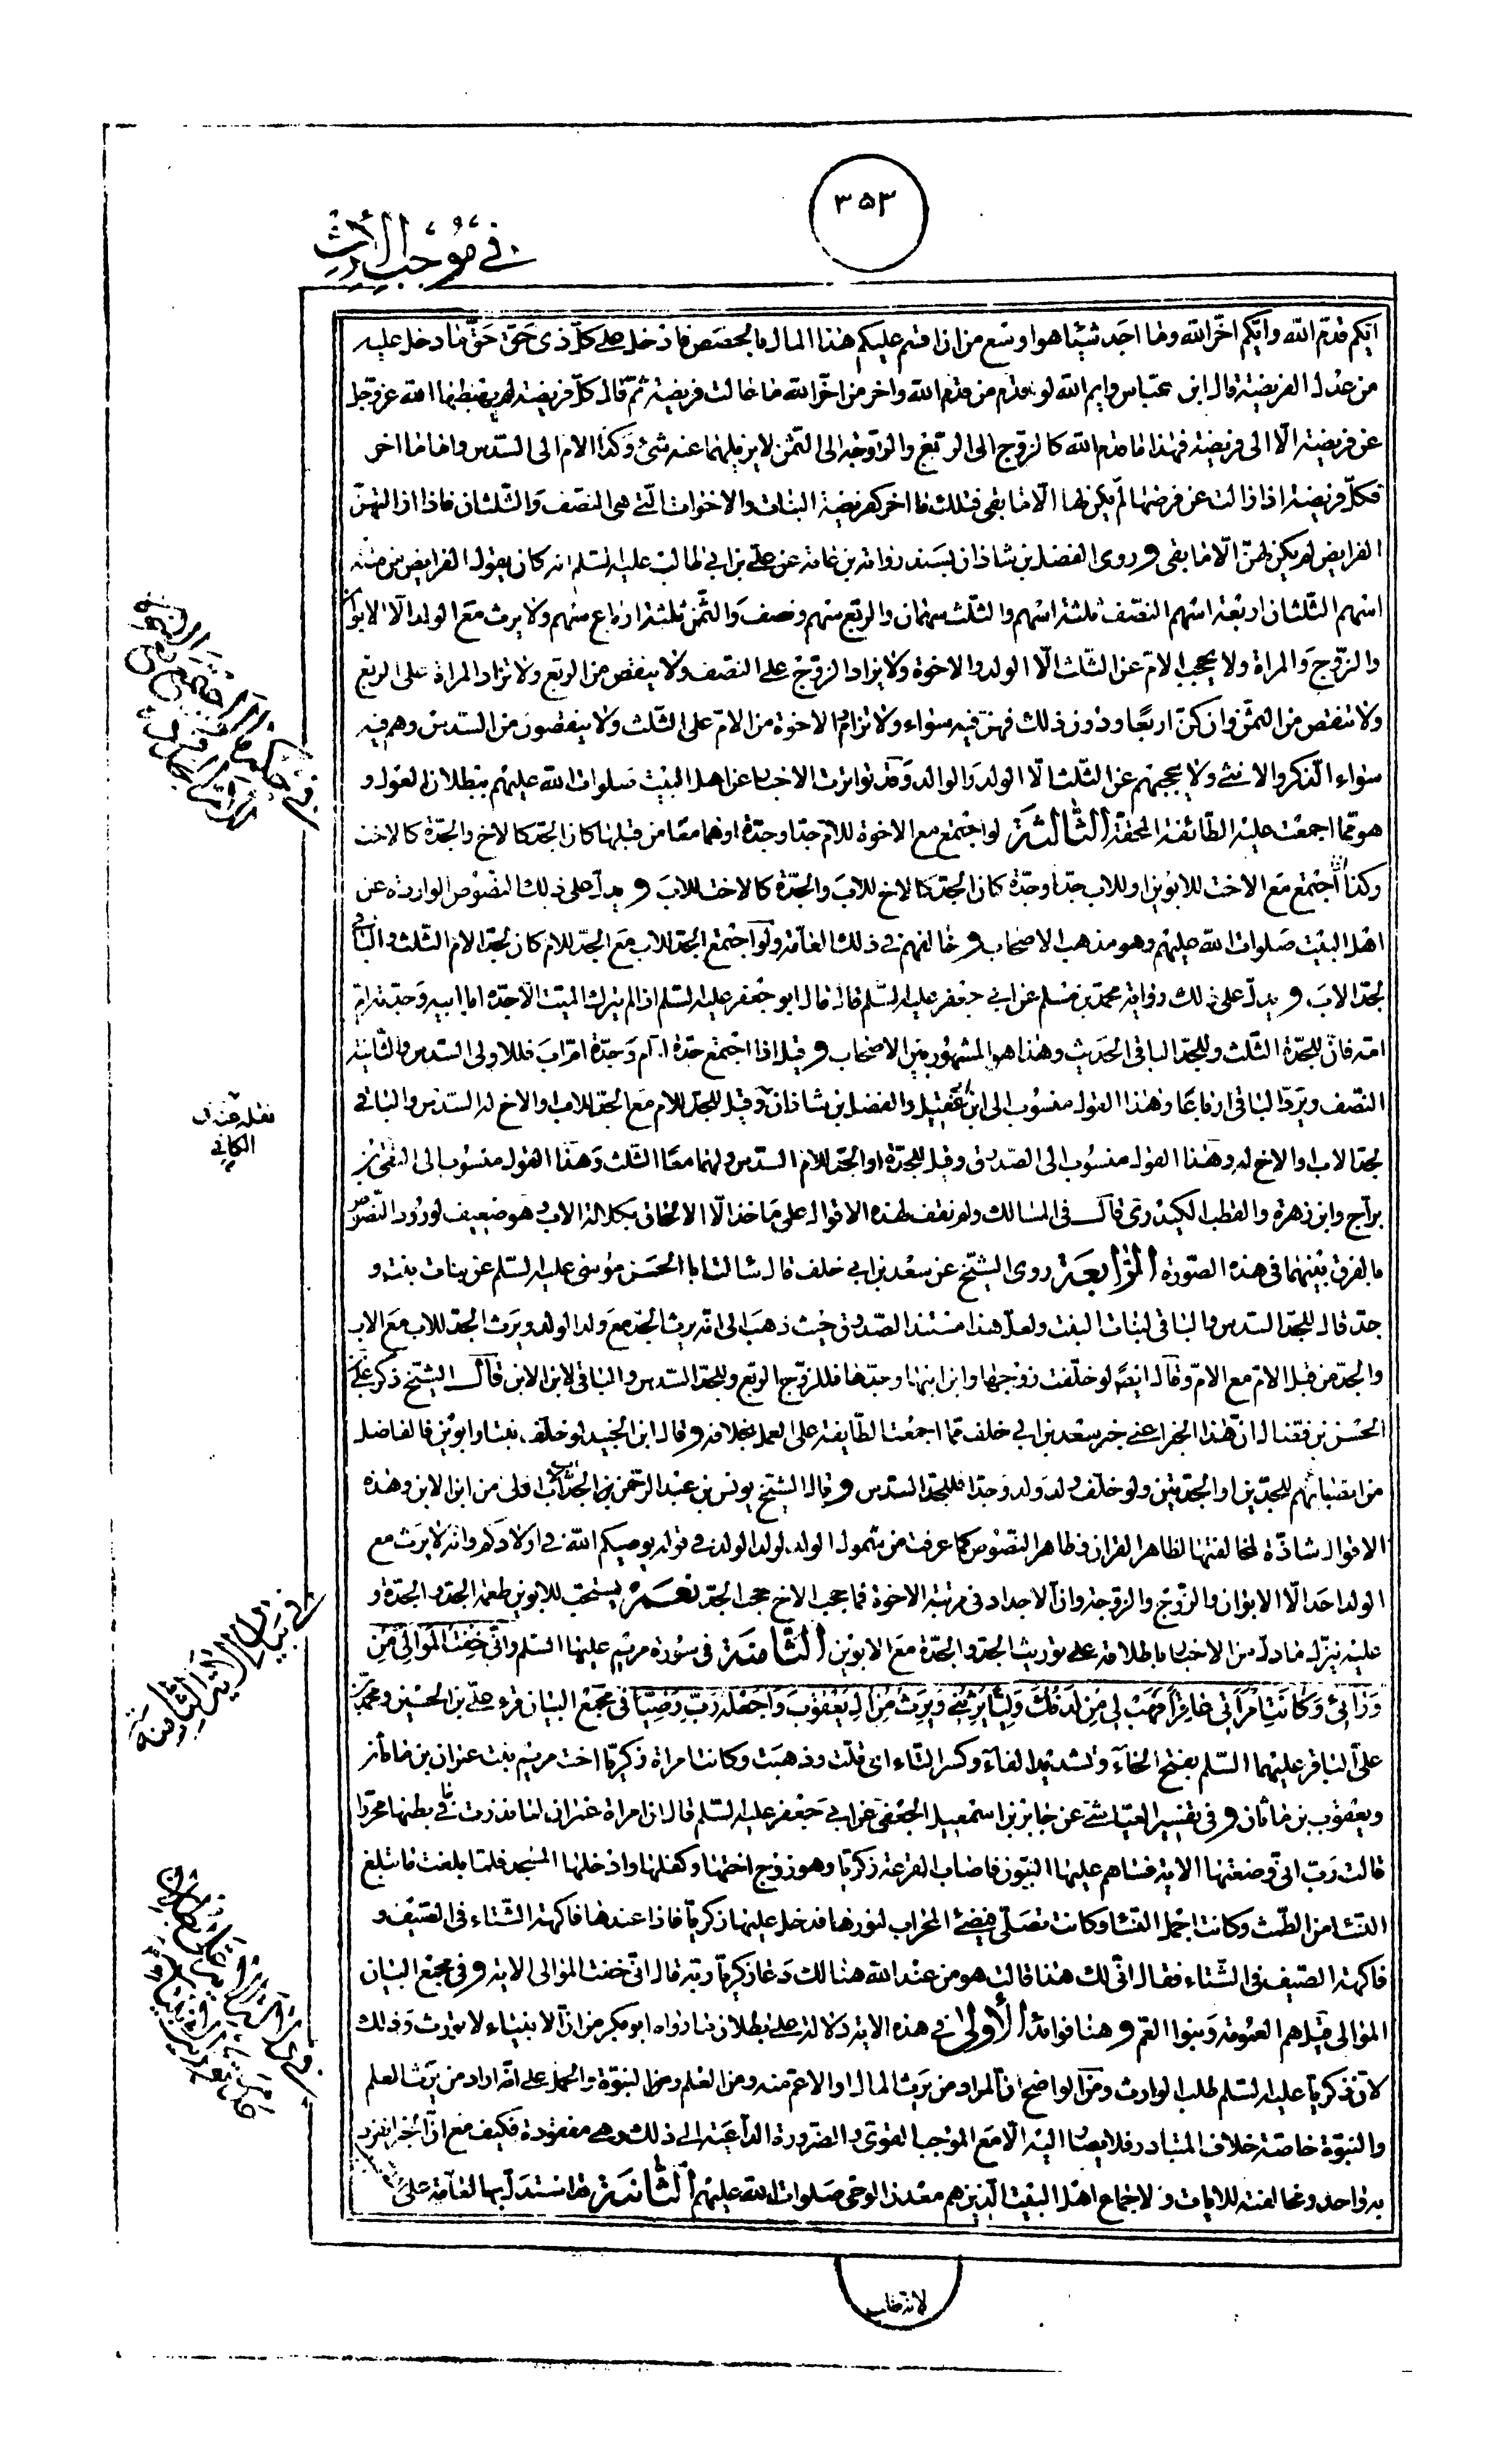 ٣٥٣
في موجب الارث
ايكم قدم الله وايكم اخر الله وما اجد شيئا هو اوسع من ان اقسم عليكم هذا المال بالحصص فادخل على كل ذى حق حق ما دخل عليه
من عول الفريضة قال ابن عباس وايم الله لو قدم من قدم الله واخر من اخر الله ما عالت فريضة ثم قال كل فريضة لم يهبطها الله عز وجل
عن فريضة الا الى فريضة فهذا ما قدم الله كالزوج الى الربع والزوجة الى الثمن لا يزيلهما عنه شئ وكذا الام الى السدس واما ما اخر
فكل فريضة اذا زالت عن فرضها لم يكن لها الا ما بقى فتلك ما اخر كفريضة البنات والاخوات التي هى النصف والثلثان فاذا ازالتهن
الفرايض لم يكن لهن الا ما بقى وروى الفضل بن شاذان بسند رواته من عامة عن على بن ابي طالب عليه السلم انه كان يقول الفرايض من ستة
اسهم الثلثان اربعة اسهم النصف ثلثة اسهم والثلث سهمان والربع سهم ونصف والثمن ثلثة ارباع سهم ولا يرث مع الولد الا الابوان
والزوج والمراة ولا يحجب الام عن الثلث الا الولد والاخوة ولا يزاد الزوج على النصف ولا ينقص من الربع ولا تزاد المراة على الربع
ولا تنقص من الثمن وان كن اربعا ودون ذلك فهن فيه سواء ولا تزاد الاخوة من الام على الثلث ولا ينقصون من السدس وهم فيه
سواء الذكر والانثى ولا يحجبهم عن الثلث الا الولد والوالد وقد تواترت الاخبار عن اهل البيت صلوات الله عليهم ببطلان العول و
هو مما اجمعت عليه الطائفة المحقة الثالثة لو اجتمع مع الاخوة للام جدا وجدة او هما معا من قبلها كان الجد كالاخ والجدة كالاخت
وكذا اذا اجتمع مع الاخت للابوين او للاب جدا وجدة كان الجد كالاخ للاب والجدة كالاخت للاب ويدل على ذلك النصوص الواردة عن
اهل البيت صلوات الله عليهم وهو مذهب الاصحاب وخالفهم في ذلك العامة ولو اجتمع الجد للاب مع الجد للام كان لجد الام الثلث والباقى
لجد الاب ويدل على ذلك رواية محمد بن مسلم عن ابي جعفر عليه السلم قال قال ابو جعفر عليه السلم اذا لم يترك الميت الا جده ابا ابيه وجدته ام
امه فان للجدة الثلث وللجد الباقى الحديث وهذا هو المشهور بين الاصحاب وقيل اذا اجتمع جدة ام ام وجدة ام اب فللاولى السدس وللثانية
النصف ويرد الباقى ارباعا وهذا القول منسوب الى ابن ابى عقيل والفضل بن شاذان وقيل للجد للام مع الجد للاب او الاخ له السدس والباقى
لجد الاب او الاخ له وهذا القول منسوب الى الصدوق وقيل للجدة او الجد للام السدس ولهما معا الثلث وهذا القول منسوب الى التقى وابن
براج وابن زهرة والقطب الكيدرى قال فى المسالك ولم نقف لهذه الاقوال على ماخذ الا الالحاق بكلالة الاب وهو ضعيف لورود النصوص
بالفرق بينهما فى هذه الصورة الرابعة روى الشيخ عن سعد بن ابي خلف قال سالت ابا الحسن موسى عليه السلم عن بنات بنت و
جد قال للجد السدس والباقى لبنات البنت ولعل هذا مستند الصدوق حيث ذهب الى انه يرث الجد مع ولد الولد ويرث الجد للاب مع الاب
والجد من قبل الام مع الام وقال ايضا لو خلفت زوجها وابن ابنها وجدها فللزوج الربع وللجد السدس والباقى لابن الابن قال الشيخ ذكر على بن
الحسن بن فضال ان هذا الخبر اعني خبر سعد بن ابي خلف مما اجمعت الطايفة على العمل بخلافه وقال ابن الجنيد لو خلف بنتا وابوين فالفاضل
من انصبائهم للجدين او الجدتين ولو خلف ولد ولد وجدا فللجد السدس وقال الشيخ يونس بن عبد الرحمن ان الجد اب الاب اولى من ابن الابن وهذه
الاقوال شاذة لمخالفتها لظاهر القران وظاهر النصوص كما عرفت من شمول الولد لولد الولد في قوله يوصيكم الله في اولادكم وانه لا يرث مع
الولد احد الا الابوان والزوج والزوجة وان الاجداد فى مرتبة الاخوة فما يحجب الاخ يحجب الجد نعم يستحب للابوين طعمة الجد والجدة و
عليه ينزل ما دل من الاخبار باطلاقه على توريث الجد والجدة مع الابوين الثامنة فى سورة مريم عليها السلم وانى خفت الموالى من
ورائى وكانت امراتى عاقرا فهب لى من لدنك وليا يرثنى ويرث من ال يعقوب واجعله رب رضيا فى مجمع البيان قرء على بن الحسين ومحمد بن
على الباقر عليهما السلم بفتح الخاء وتشديد الفاء وكسر التاء اى قلت وذهبت وكانت امراة زكريا اخت مريم بنت عمران بن ماثان
ويعقوب بن ماثان وفى تفسير العياشى عن جابر بن اسمعيل الجعفى عن ابي جعفر عليه السلم قال ان امراة عمران لما نذرت ما في بطنها محررا
قالت رب انى وضعتها الاية فساهم عليها النبيون فاصاب القرعة زكريا وهو زوج اختها وكفلها وادخلها المسجد فلما بلغت ما تبلغ
النساء من الطمث وكانت اجمل النساء وكانت تصلى فيضئ المحراب لنورها فدخل عليها زكريا فاذا عندها فاكهة الشتاء فى الصيف و
فاكهة الصيف فى الشتاء فقال انى لك هذا قالت هو من عند الله هنالك دعا زكريا ربه قال انى خفت الموالى الاية وفى مجمع البيان
الموالى قيل هم العمومة وبنوا العم وهنا فوائد الأولى في هذه الاية دلالة على بطلان ما رواه ابو بكر من ان الانبياء لا تورث وذلك
لان زكريا عليه السلم طلب الوارث ومن الواضح ان المراد من يرث المال او الاعم منه ومن العلم ومن النبوة والحمل على انه اراد من يرث العلم
والنبوة خاصة خلاف المتبادر فلا يصار اليه الا مع الموجب القوى والضرورة الداعية الى ذلك وهى مفقودة فكيف مع ان الخبر انفرد
به واحد ومخالفته للايات ولاجماع اهل البيت الذين هم معدن الوحى صلوات الله عليهم الثانية قد استدل بها العامة على
نقله عنه فى
الكافي
في بيان الاية الثامنة